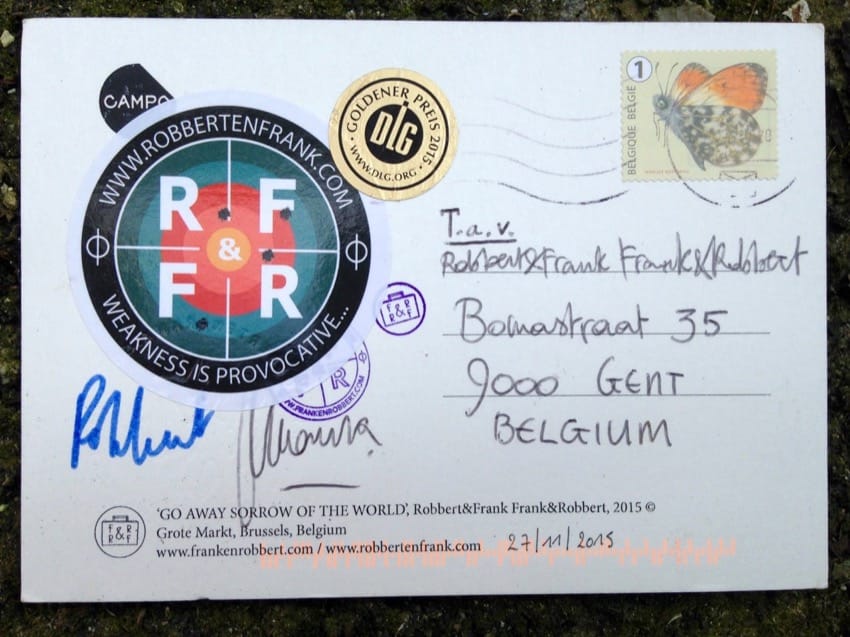 CAMPO
WWW.ROBBERTENFRANK.COM
R F
&
F R
WEAKNESS IS PROVOCATIVE...
GOLDENER PREIS 2015
DLG
WWW.DLG.ORG
1
BELGIQUE BELGIË
T.a.v.
Robbert&Frank Frank&Robbert
Bomastraat 35
9000 GENT
BELGIUM
F&R
R&F
R
FRANKENROBBERT.COM
Robbert
'GO AWAY SORROW OF THE WORLD', Robbert&Frank Frank&Robbert, 2015 ©
Grote Markt, Brussels, Belgium
www.frankenrobbert.com / www.robbertenfrank.com 27/11/2015
F&R
R&F